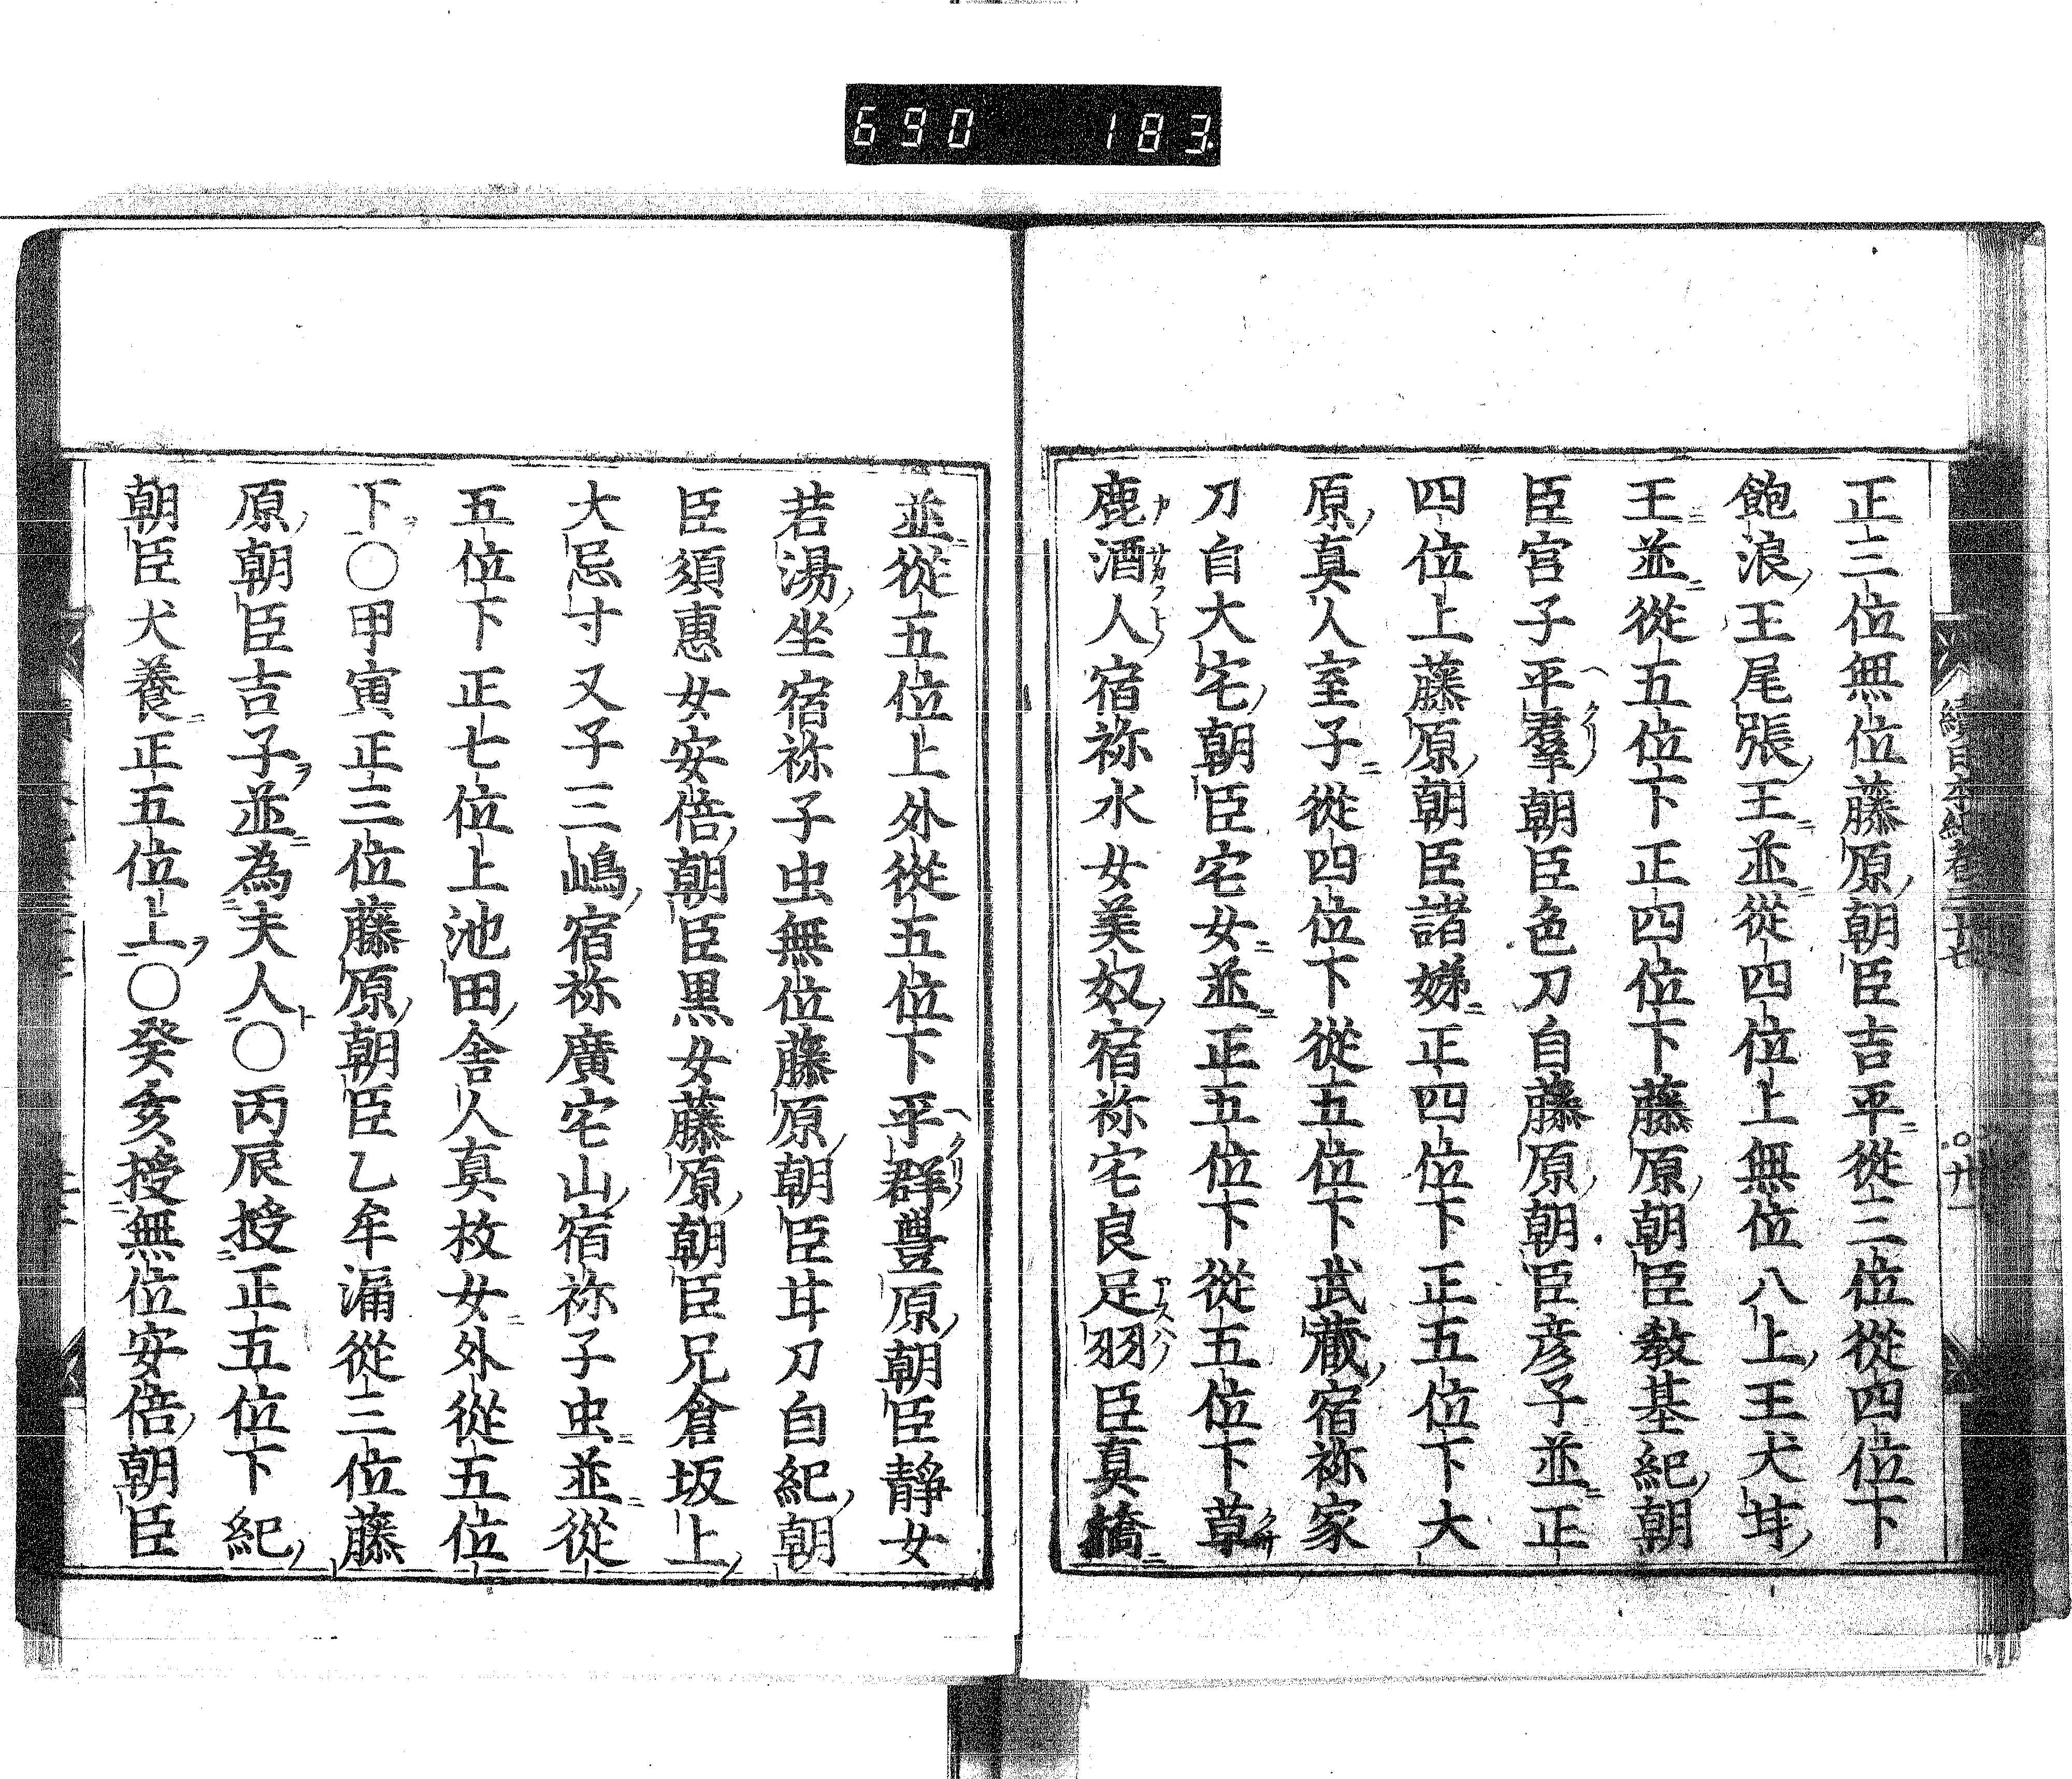 690 183
續日本紀卷三十七 ○廿一
正三位無位藤原朝臣吉平從三位從四位下
飽浪王尾張王並從四位上無位八上王犬甘
王並從五位下正四位下藤原朝臣教基紀朝
臣宮子平羣朝臣色刀自藤原朝臣彦子並正
四位上藤原朝臣諸姊正四位下正五位下大
原真人室子從四位下從五位下武藏宿祢家
刀自大宅朝臣宅女並正五位下從五位下草
鹿酒人宿祢水女美奴宿祢宅良足羽臣真橋
並從五位上外從五位下平群豊原朝臣靜女
若湯坐宿祢子虫無位藤原朝臣甘刀自紀朝
臣須惠女安倍朝臣黒女藤原朝臣兄倉坂上
大忌寸又子三嶋宿祢廣宅山宿祢子虫並從
五位下正七位上池田舎人真枚女外從五位
下○甲寅正三位藤原朝臣乙牟漏從三位藤
原朝臣吉子並為夫人○丙辰授正五位下紀
朝臣犬養正五位上○癸亥授無位安倍朝臣